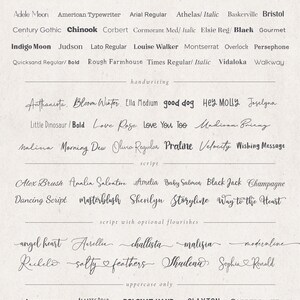 Adele Moon American Typewriter Arial Regular Athelas/ Italic Baskerville Bristol
Century Gothic Chinook Corbert Cormoran Med/ Italic Elsie Reg/ Black Gourmet
Indigo Moon Judson Lato Regular Louise Walker Montserrat Overlock Persephone
Quicksand Regular/ Bold Rough Farmhouse Times Regular/ Italic Vidaloka Walkway
handwriting
Anthracite Bloom Winter Ella Medium good dog HEY MOLLY Joselyna
Little Dinosaur / Bold Love Rose Love You Too Madison Penny
malina Morning Dew Olivia Regular Praline Velocity Wishing Message
script
Alex Brush Analia Salvaton Amelia Baby Salmon Black Jack Champagne
Dancing Script masterblush Sherilyn Storyline Way to the Heart
script with optional flourishes
angel heart Aurellia challista malisia
Rachela salty feathers Shailena Sophia Ronald
uppercase only